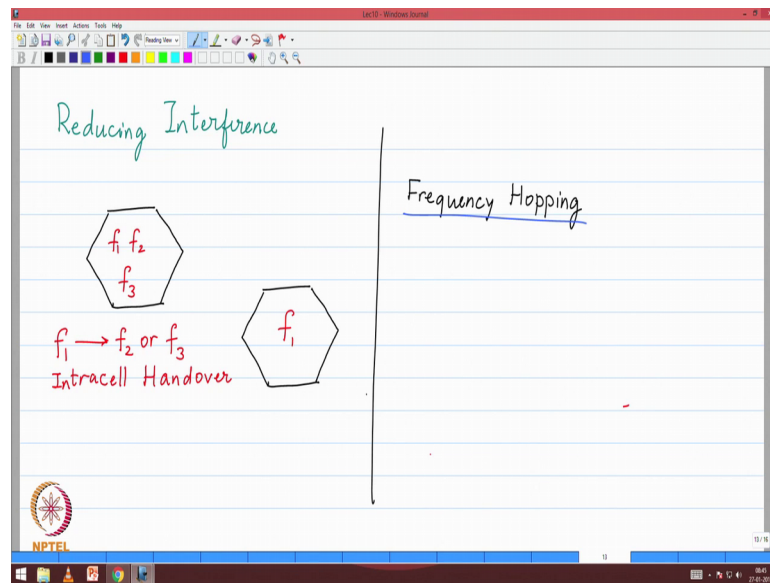 Lec10 - Windows Journal
File Edit View Insert Actions Tools Help
Reading View
B I
Reducing Interference
f1 f2
f3
f1 → f2 or f3
Intracell Handover
f1
Frequency Hopping
NPTEL
13 / 16
13
08:45